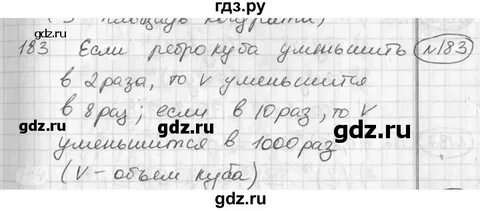 гдз.ру
(S площадь квадрата)
183 Если ребро куба уменьшить №183
в 2 раза, то V уменьшится
в 8 раз; если в 10 раз, то V
уменьшится в 1000 раз
(V - объем куба)
gdz.ru
gdz.ru